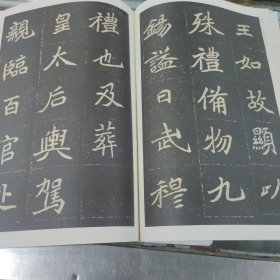 王如故顯以
殊禮備物九
錫謚曰武穆
禮也及葬
皇太后輿駕
親臨百官赴